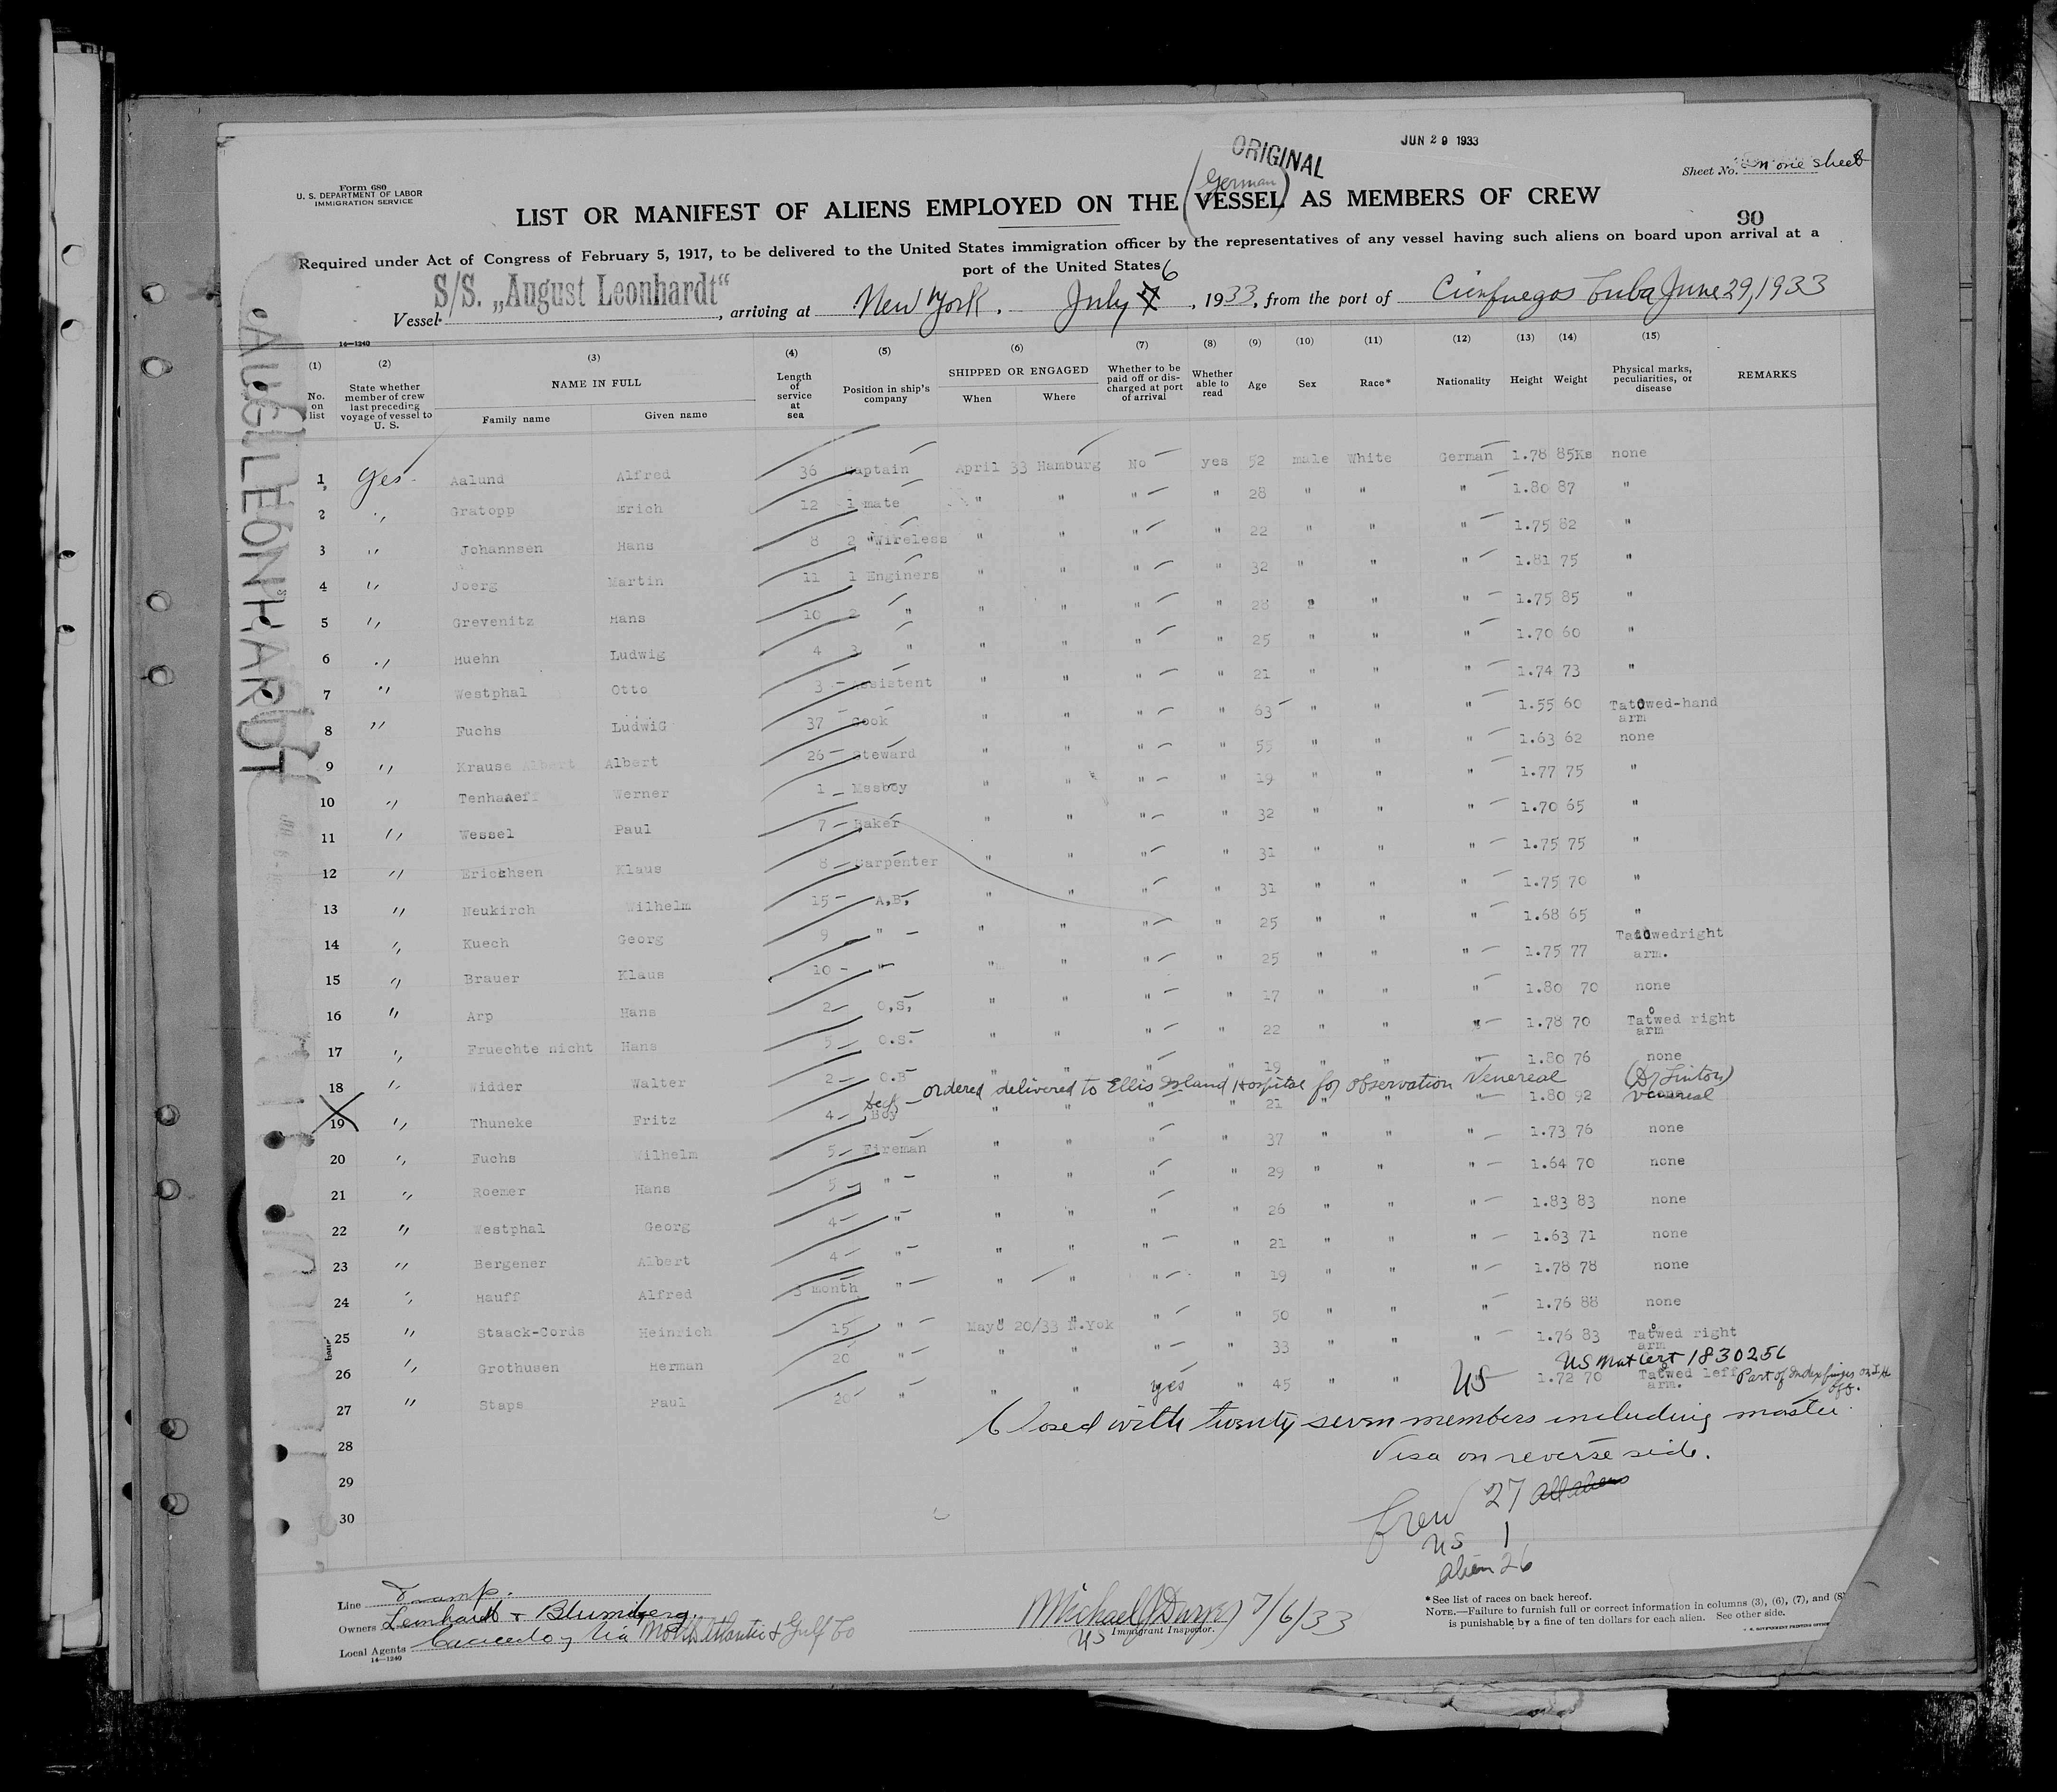 JUN 29 1933
ORIGINAL
Sheet No. In one sheet
Form 680
U. S. DEPARTMENT OF LABOR
IMMIGRATION SERVICE
(German)
LIST OR MANIFEST OF ALIENS EMPLOYED ON THE VESSEL AS MEMBERS OF CREW
90
Required under Act of Congress of February 5, 1917, to be delivered to the United States immigration officer by the representatives of any vessel having such aliens on board upon arrival at a
port of the United States
Vessel S/S. „August Leonhardt“, arriving at New York. July 6, 1933, from the port of Cienfuegos Cuba June 29, 1933
AUG LEONHARDT
14—1240
(1) (2) (3) (4) (5) (6) (7) (8) (9) (10) (11) (12) (13) (14) (15)
No. on list
State whether member of crew last preceding voyage of vessel to U. S.
NAME IN FULL
Family name Given name
Length of service at sea
Position in ship's company
SHIPPED OR ENGAGED
When Where
Whether to be paid off or discharged at port of arrival
Whether able to read
Age Sex Race* Nationality Height Weight
Physical marks, peculiarities, or disease
REMARKS
1 Yes Aalund Alfred 36 Captain April 33 Hamburg No yes 52 male White German 1.78 85Ks none
2 " Gratopp Erich 12 1 mate " " " " 28 " " " 1.80 87 "
3 " Johannsen Hans 8 2 "Wireless " " " " 22 " " " 1.75 82 "
4 " Joerg Martin 11 1 Enginers " " " " 32 " " " 1.81 75 "
5 " Grevenitz Hans 10 2 " " " " " 28 " " " 1.75 85 "
6 " Huehn Ludwig 4 3 " " " " " 25 " " " 1.70 60 "
7 " Westphal Otto 3 Assistent " " " " 21 " " " 1.74 73 "
8 " Fuchs LudwiG 37 Cook " " " " 63 " " " 1.55 60 Tatowed-hand arm
9 " Krause Albert Albert 26 Steward " " " " 55 " " " 1.63 62 none
10 " Tenhaaeff Werner 1 Mssboy " " " " 19 " " " 1.77 75 "
11 " Wessel Paul 7 Baker " " " " 32 " " " 1.70 65 "
12 " Erichhsen Klaus 8 Carpenter " " " " 31 " " " 1.75 75 "
13 " Neukirch Wilhelm 15 A,B, " " " " 31 " " " 1.75 70 "
14 " Kuech Georg 9 " " " " " 25 " " " 1.68 65 "
15 " Brauer Klaus 10 " " " " " 25 " " " 1.75 77 Tatowedright arm.
16 " Arp Hans 2 O,S, " " " " 17 " " " 1.80 70 none
17 " Fruechte nicht Hans 5 O.S. " " " " 22 " " " 1.78 70 Tatowed right arm
18 " Widder Walter 2 O.B " " " " 19 " " " 1.80 76 none
ordered delivered to Ellis Island Hospital for observation Venereal (Dr Linton)
19 " Thuneke Fritz 4 Deck Boy " " " " 21 " " " 1.80 92 venereal
20 " Fuchs Wilhelm 5 Fireman " " " " 37 " " " 1.73 76 none
21 " Roemer Hans 5 " " " " " 29 " " " 1.64 70 none
22 " Westphal Georg 4 " " " " " 26 " " " 1.83 83 none
23 " Bergener Albert 4 " " " " " 21 " " " 1.63 71 none
24 " Hauff Alfred 3 month " " " " " 19 " " " 1.78 78 none
25 " Staack-Cords Heinrich 15 " May 20/33 N.Yok " " 50 " " " 1.76 88 none
26 " Grothusen Herman 20 " " " " " 33 " " " 1.76 83 Tatowed right arm
US Nat Cert 1830256
27 " Staps Paul 20 " " " yes " 45 " " US 1.72 70 Tatowed left arm. Part of Index finger on L H off.
28
29
30
Closed with twenty seven members including master.
Visa on reverse side.
Crew 27 all aliens
US 1
Alien 26
Line Tramp.
Owners Leonhardt & Blumberg.
Local Agents via North Atlantic & Gulf Co
14—1240
7/6/33
US Immigrant Inspector.
*See list of races on back hereof.
NOTE.—Failure to furnish full or correct information in columns (3), (6), (7), and (8)
is punishable by a fine of ten dollars for each alien. See other side.
U. S. GOVERNMENT PRINTING OFFICE